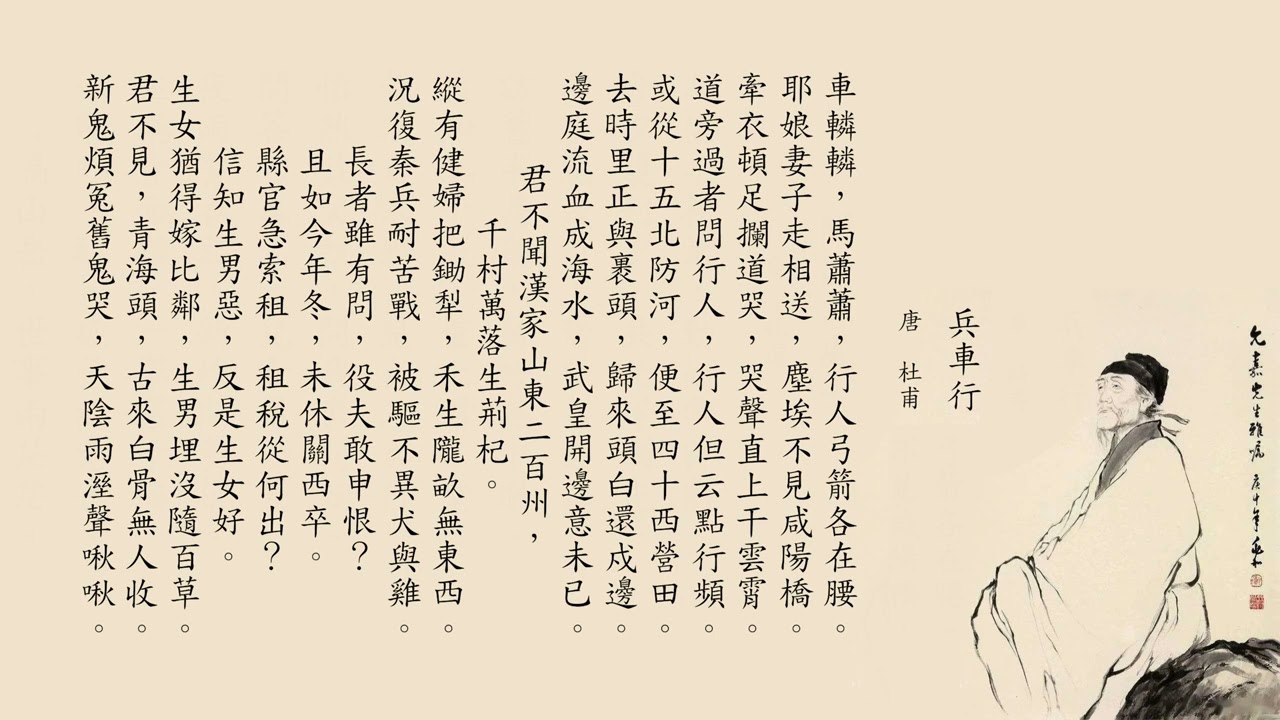 兵車行
唐 杜甫
車轔轔，馬蕭蕭，行人弓箭各在腰。
耶娘妻子走相送，塵埃不見咸陽橋。
牽衣頓足攔道哭，哭聲直上干雲霄。
道旁過者問行人，行人但云點行頻。
或從十五北防河，便至四十西營田。
去時里正與裹頭，歸來頭白還戍邊。
邊庭流血成海水，武皇開邊意未已。
君不聞漢家山東二百州，
千村萬落生荊杞。
縱有健婦把鋤犁，禾生隴畝無東西。
況復秦兵耐苦戰，被驅不異犬與雞。
長者雖有問，役夫敢申恨？
且如今年冬，未休關西卒。
縣官急索租，租稅從何出？
信知生男惡，反是生女好。
生女猶得嫁比鄰，生男埋沒隨百草。
君不見，青海頭，古來白骨無人收。
新鬼煩冤舊鬼哭，天陰雨溼聲啾啾。